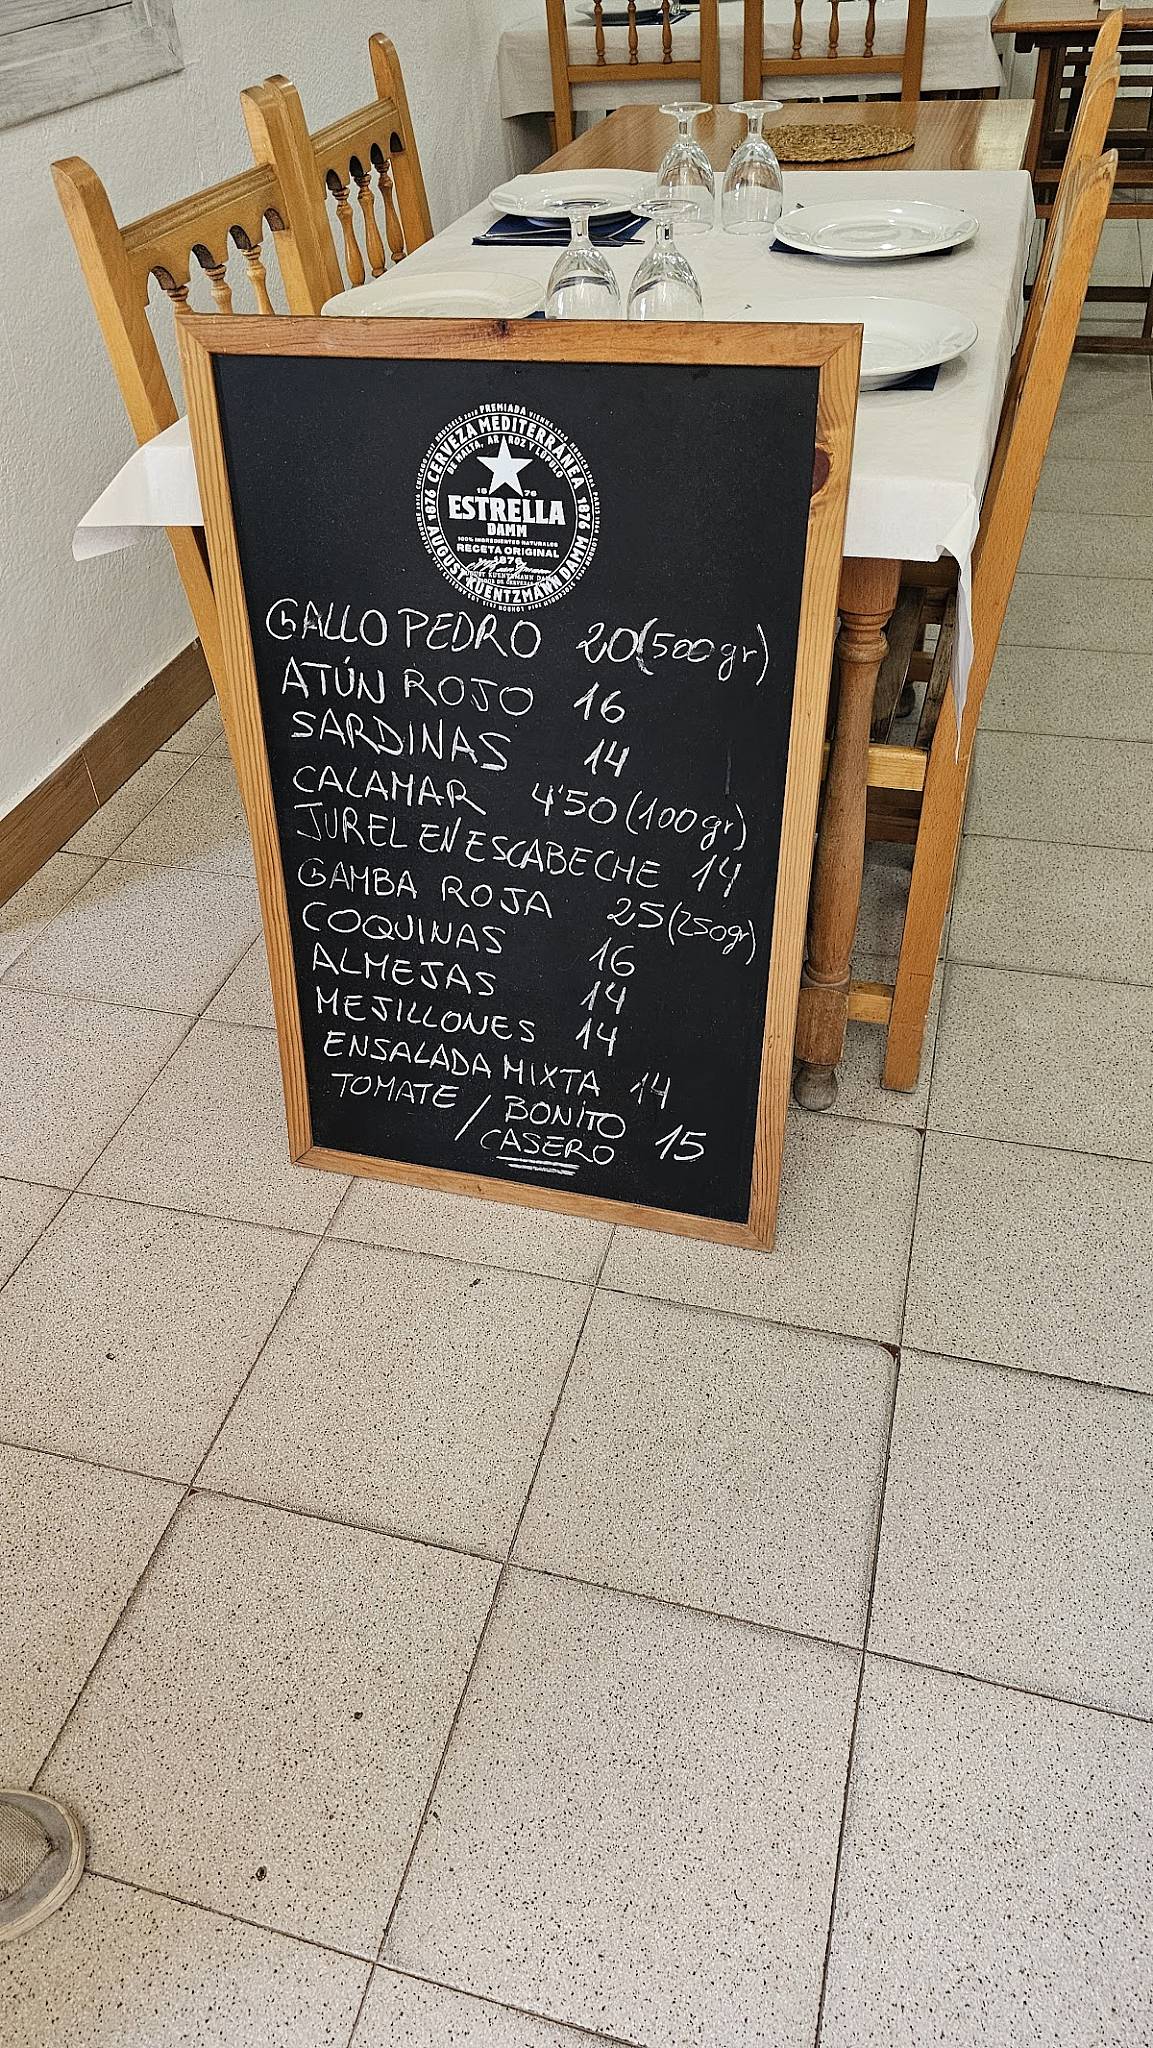 PREMIADA
CERVEZA MEDITERRÁNEA
DE MALTA, ARROZ Y LÚPULO
1876
1876
18 76
ESTRELLA
DAMM
100% INGREDIENTES NATURALES
RECETA ORIGINAL
1876
AUGUST KUENTZMANN DAMM
GALLO PEDRO 20 (500gr)
ATÚN ROJO 16
SARDINAS 14
CALAMAR 4'50 (100gr)
JUREL EN ESCABECHE 14
GAMBA ROJA 25 (250gr)
COQUINAS 16
ALMEJAS 14
MEJILLONES 14
ENSALADA MIXTA 14
TOMATE / BONITO
CASERO 15